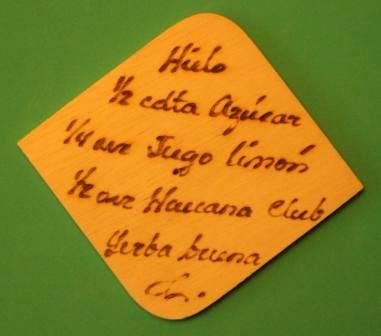 Hielo
1/2 cdta Azúcar
1/4 onz Jugo limón
1/2 onz Havana Club
Yerba buena